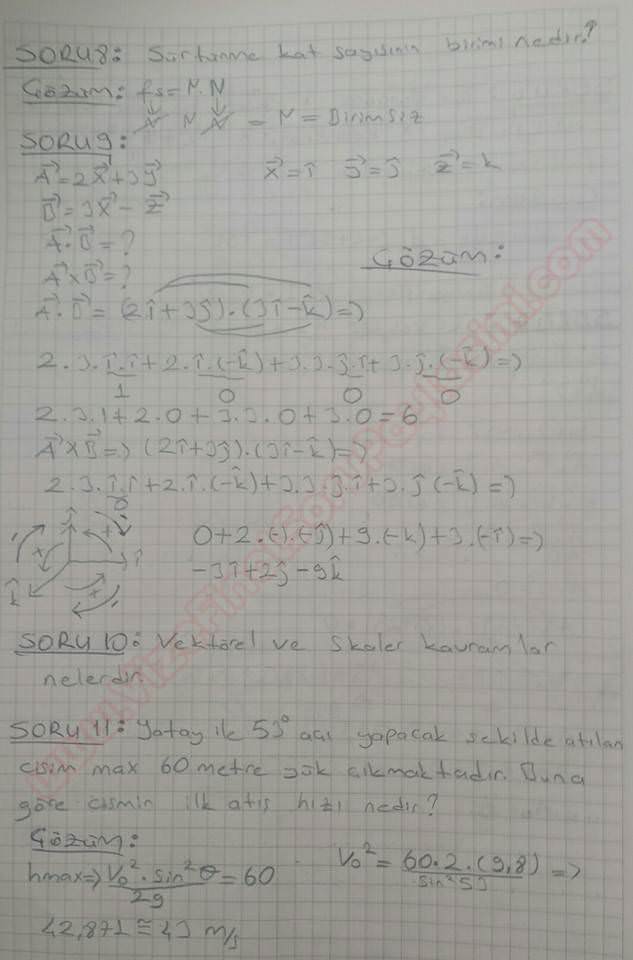 SORU8: Sürtünme kat sayısının birimi nedir?
Çözüm: fs=M.N
N M N = M = Birimsiz
SORU9:
A⃗=2x⃗+3y⃗ x⃗=î y⃗=ĵ z⃗=k
B⃗=3x⃗-z⃗
A⃗.B⃗=?
A⃗xB⃗=?
Çözüm:
A⃗.B⃗=(2î+3ĵ).(3î-k̂)=>
2.3.î.î+2.î.(-k̂)+3.3.ĵ.î+3.ĵ.(-k̂)=>
1 0 0 0
2.3.1+2.0+3.3.0+3.0=6
A⃗xB⃗=>(2î+3ĵ).(3î-k̂)=>
2.3.î.î+2.î.(-k̂)+3.3.ĵ.î+3.ĵ(-k̂)=>
0
0+2.(-).(-ĵ)+9.(-k)+3.(-î)=>
-3î+2ĵ-9k̂
ĵ î k̂
SORU10: Vektörel ve Skaler kavramlar
nelerdir.
SORU 11: Yatay ik 53° açı yapacak sekilde atılan
cisim max 60 metre yük çıkmaktadır. Buna
göre cismin ilk atış hızı nedir?
Çözüm:
hmax=>V₀².sin²θ/2g=60 V₀²=60.2.(9,8)/sin²53=>
42,871≅43 m/s